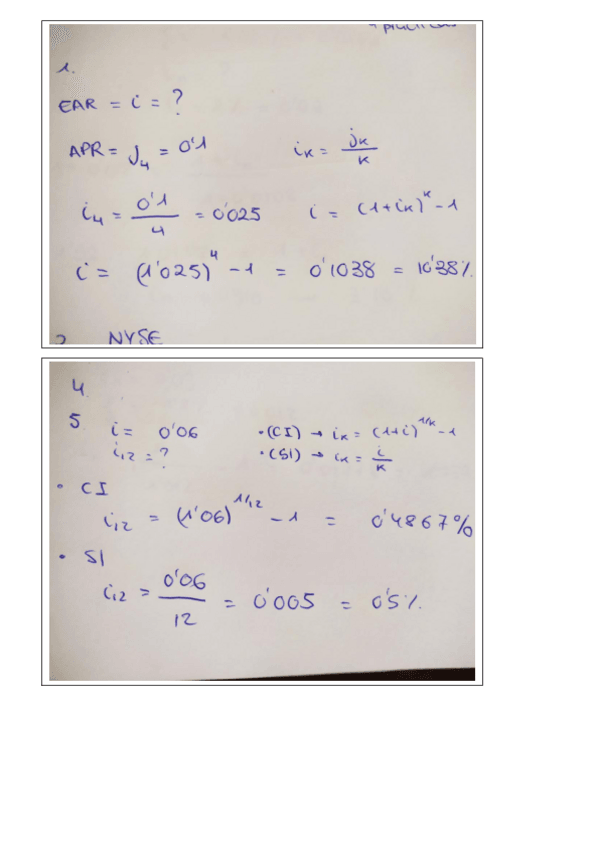 1.
EAR = i = ?
APR = J4 = 0'1 iK = jK/K
i4 = 0'1/4 = 0'025 i = (1+iK)^K - 1
i = (1'025)^4 - 1 = 0'1038 = 10'38%
2 NYSE
4
5 i = 0'06 • (CI) → iK = (1+i)^1/K - 1
i12 = ? • (SI) → iK = i/K
• CI
i12 = (1'06)^1/12 - 1 = 0'4867%
• SI
i12 = 0'06/12 = 0'005 = 0'5%